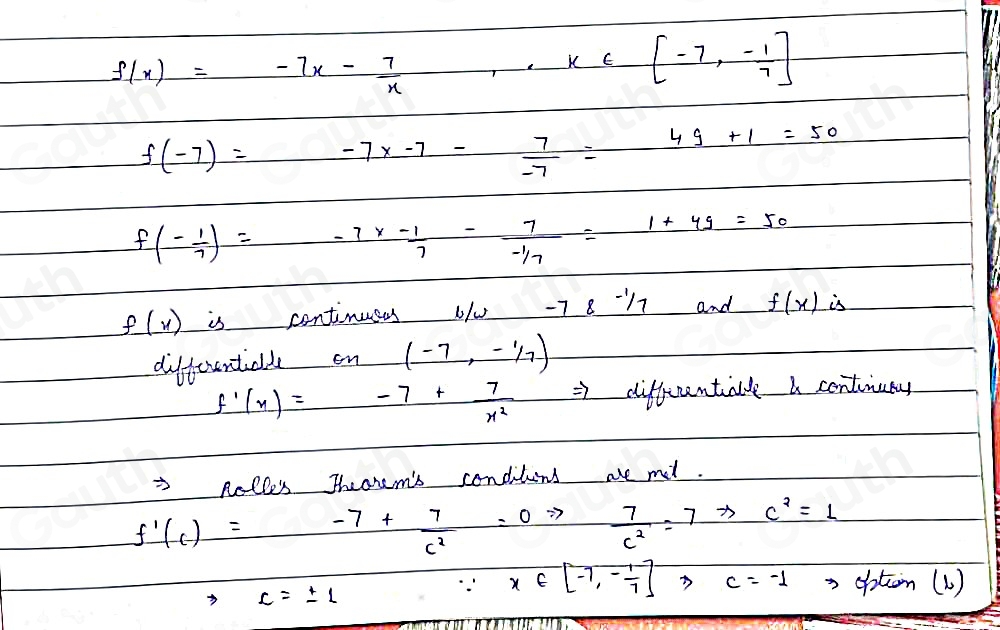 f(x) = -7x - 7/x , . x ∈ [-7, -1/7]
f(-7) = -7 × -7 - 7/-7 = 49 + 1 = 50
f(-1/7) = -7 × -1/7 - 7/-1/7 = 1 + 49 = 50
f(x) is continuous b/w -7 & -1/7 and f(x) is
differentiable on (-7, -1/7)
f'(x) = -7 + 7/x² ⇒ differentiable & continuous
⇒ Rolle's Theorem's conditions are met.
f'(c) = -7 + 7/c² = 0 ⇒ 7/c² = 7 ⇒ c² = 1
⇒ c = ± 1 ∵ x ∈ [-7, -1/7] ⇒ c = -1 → option (b)